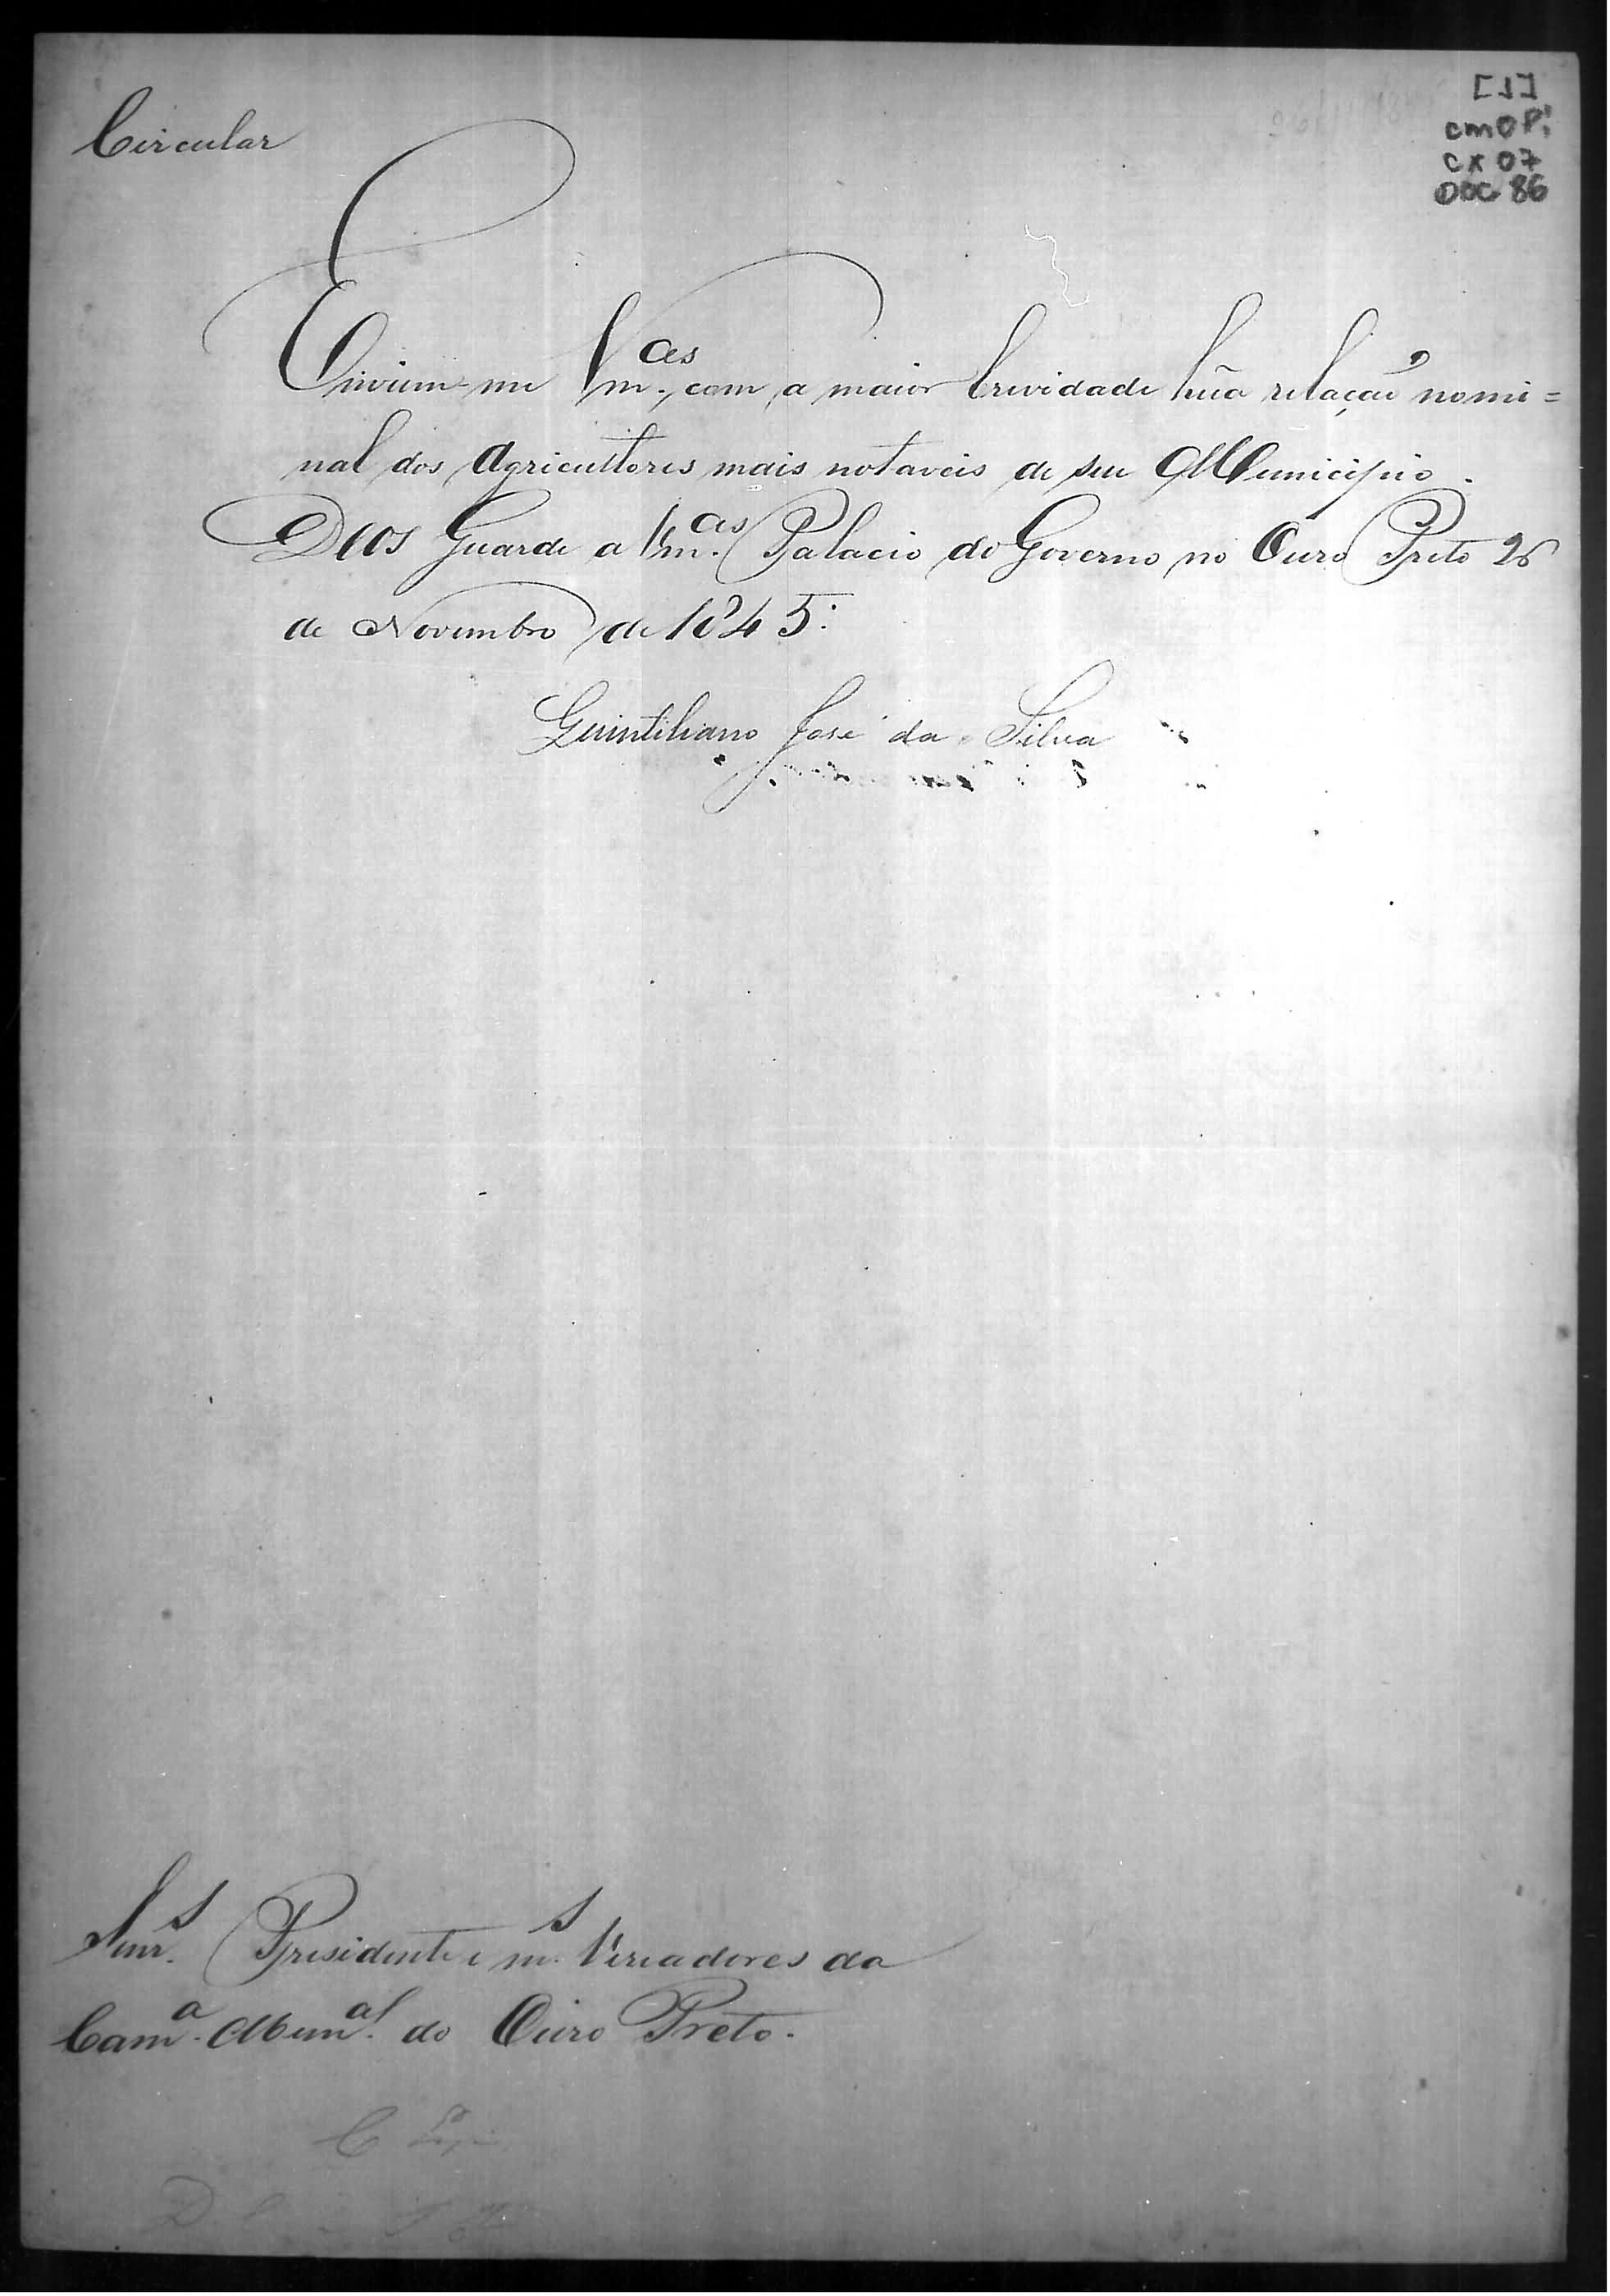 [1]
CMOP:
CX 07
DOC 86
Circular
Enviem-me Vm.ces com a maior brevidade hũa relação nomi=
nal dos Agricultores mais notaveis de seu Municipio.
Deos Guarde a Vm.ces Palacio do Governo no Ouro Preto 26
de Novembro de 1845.
Quintiliano José da Silva
Snr.s Presidente e m.s Vereadores da
Cam.a Mun.al do Ouro Preto.